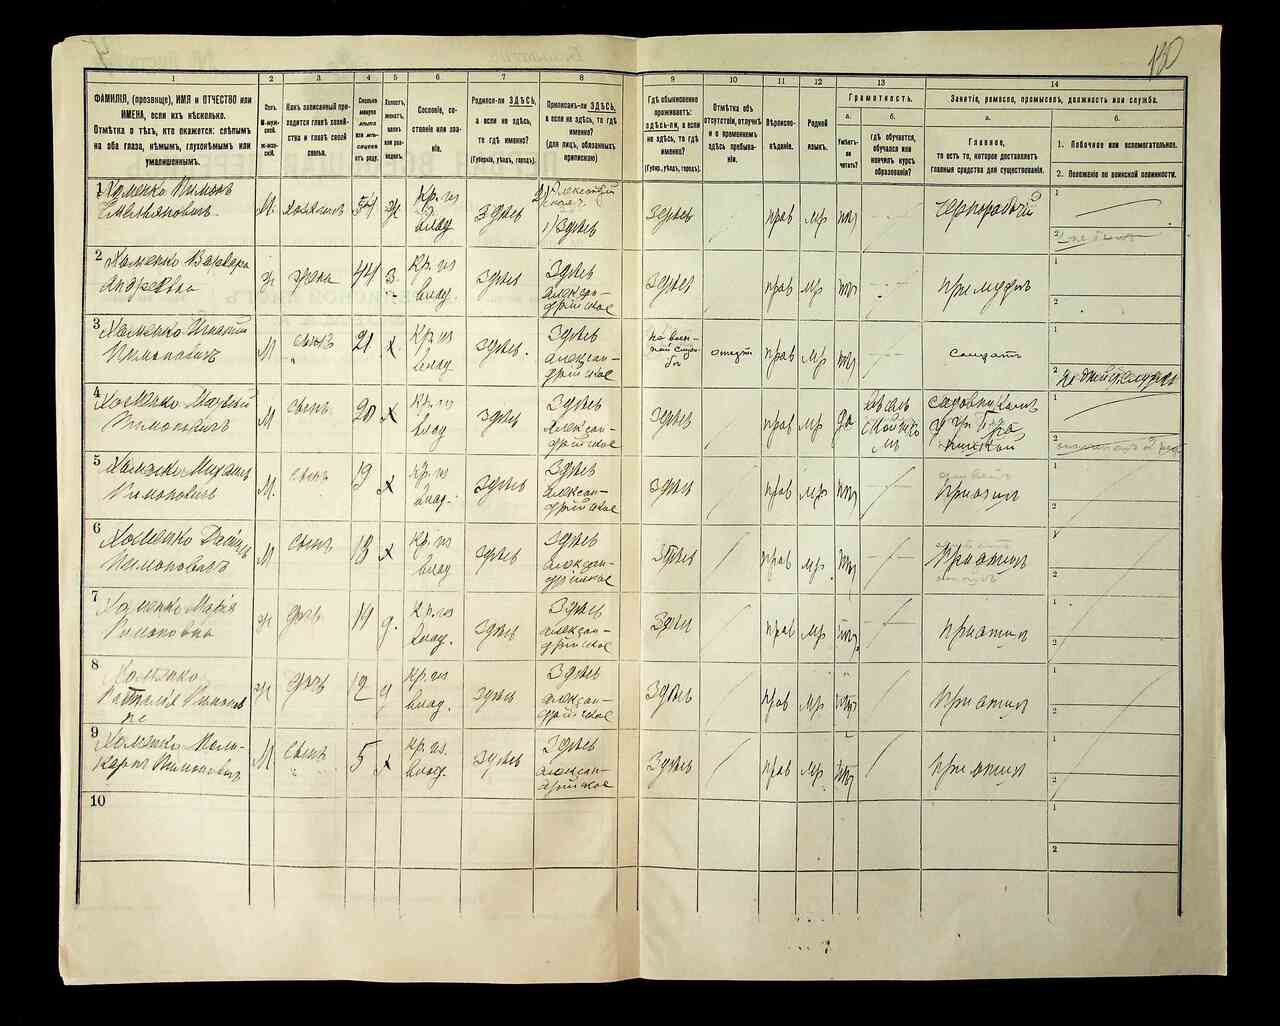 130
1 2 3 4 5 6 7 8 9 10 11 12 13 14
ФАМИЛІЯ, (прозвище), ИМЯ и ОТЧЕСТВО или
ИМЕНА, если ихъ нѣсколько.
Отмѣтка о тѣхъ, кто окажется: слѣпымъ
на оба глаза, нѣмымъ, глухонѣмымъ или
умалишеннымъ.
Полъ.
М-мужской.
Ж-женскій.
Какъ записанный приходится
главѣ хозяйства
и главѣ своей
семьи.
Сколько
минуло
лѣтъ
или мѣсяцевъ
отъ роду.
Холостъ,
женатъ,
вдовъ
или разведенъ.
Сословіе, состояніе
или званіе.
Родился-ли ЗДѢСЬ,
а если не здѣсь,
то гдѣ именно?
(Губернія, уѣздъ, городъ).
Приписанъ-ли ЗДѢСЬ,
а если не здѣсь, то гдѣ
именно?
(для лицъ, обязанныхъ
припискою)
Гдѣ обыкновенно
проживаетъ:
здѣсь-ли, а если
не здѣсь, то гдѣ
именно?
(Губер., уѣздъ, городъ).
Отмѣтка объ
отсутствіи, отлучкѣ
и о временномъ
здѣсь пребываніи.
Вѣроисповѣданіе.
Родной
языкъ.
Грамотность.
а. б.
Умѣетъ-ли
читать?
Гдѣ обучается,
обучался или
кончилъ курсъ
образованія?
Занятіе, ремесло, промыселъ, должность или служба.
а. б.
Главное,
то есть то, которое доставляетъ
главныя средства для существованія.
1. Побочное или вспомогательное.
2. Положеніе по воинской повинности.
1 Хоменко Пимонъ
Емельяновичъ
М. хозяинъ 54 ж Кр. из
влад
здѣсь
1) Здѣсь
Здѣсь прав мр
Чернорабочій
1
2
2 Хоменко Варвара
Андреевна
ж жена 44 з. Кр. из
влад
здѣсь Здѣсь
алексан-
дрійское
Здѣсь прав мр
при мужѣ
1
2
3 Хоменко Игнатій
Пимоновичъ
М сынъ 21 х. Кр. из
влад.
здѣсь. Здѣсь
алексан-
дрійское
на воен-
ной служ-
бѣ
прав мр
солдатъ
1
2 На дѣйст. службѣ
4 Хоменко
Пимоновичъ
М сынъ 20 х Кр. из
влад
здѣсь Здѣсь
алексан-
дрійское
Здѣсь прав мр да
1
2
5 Хоменко Михаилъ
Пимоновичъ
М. сынъ 19 х Кр. из
влад.
здѣсь Здѣсь
алексан-
дрійское
Здѣсь прав мр
При отцѣ
1
2
6 Хоменко
Пимоновичъ
М сынъ 13 х Кр. из
влад
здѣсь Здѣсь
алексан-
дрійское
Здѣсь прав мр.
При отцѣ
1
2
7 Хоменко Марія
Пимоновна
ж дочь д. Кр. из
влад.
здѣсь Здѣсь
алексан-
дрійское
Здѣсь прав мр
при отцѣ
1
2
8 Хоменко
Наталія Пимонов
на
ж дочь 12 д Кр. из
влад.
здѣсь Здѣсь
алексан-
дрійское
Здѣсь прав мр
при отцѣ
1
2
9 Хоменко Поли-
карпъ Пимоновичъ
М сынъ 5 х Кр. из.
влад.
здѣсь Здѣсь
алексан-
дрійское
Здѣсь прав мр
при отцѣ
1
2
10
1
2